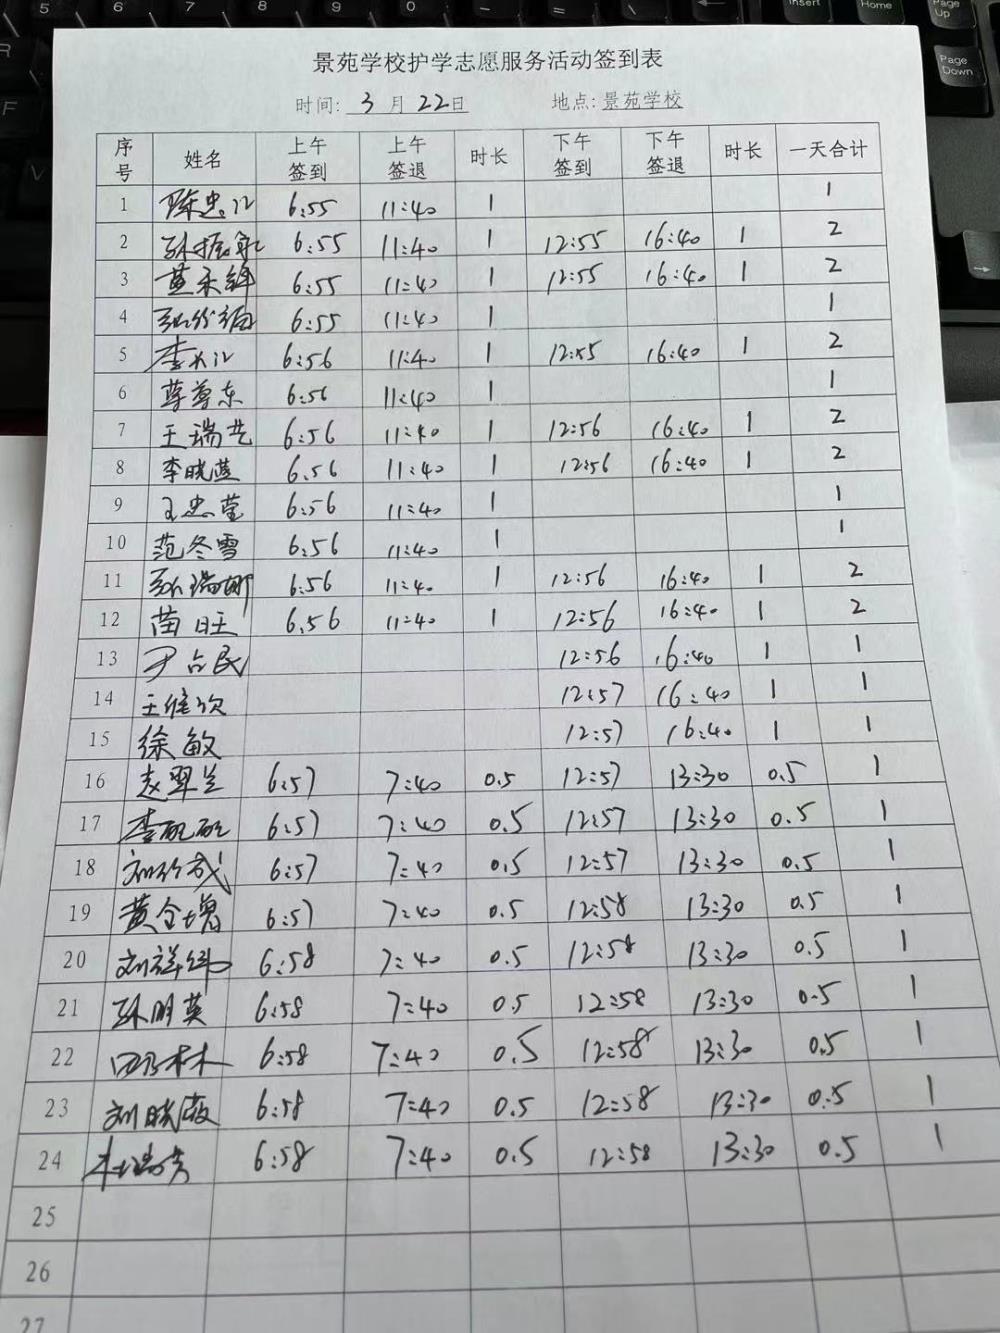 景苑学校护学志愿服务活动签到表
时间: 3 月 22日 地点: 景苑学校
序号 姓名 上午签到 上午签退 时长 下午签到 下午签退 时长 一天合计
1 陈忠江 6:55 11:40 1 1
2 6:55 11:40 1 12:55 16:40 1 2
3 6:55 11:40 1 12:55 16:40 1 2
4 6:55 11:40 1 1
5 6:56 11:40 1 12:55 16:40 1 2
6 6:56 11:40 1 1
7 王瑞芝 6:56 11:40 1 12:56 16:40 1 2
8 李晓莲 6.56 11:40 1 12:56 16:40 1 2
9 王忠莹 6:56 11:40 1 1
10 范冬雪 6:56 11:40 1 1
11 孙瑞娜 6:56 11:40 1 12:56 16:40 1 2
12 苗旺 6.56 11:40 1 12:56 16:40 1 2
13 尹占民 12:56 16:40 1 1
14 12:57 16:40 1 1
15 徐敏 12:57 16:40 1 1
16 赵翠兰 6:57 7:40 0.5 12:57 13:30 0.5 1
17 6:57 7:40 0.5 12:57 13:30 0.5 1
18 6:57 7:40 0.5 12:57 13:30 0.5 1
19 6:57 7:40 0.5 12:58 13:30 0.5 1
20 6:58 7:40 0.5 12:58 13:30 0.5 1
21 孙明英 6:58 7:40 0.5 12:58 13:30 0.5 1
22 6:58 7:40 0.5 12:58 13:30 0.5 1
23 刘晓薇 6:58 7:40 0.5 12:58 13:30 0.5 1
24 6:58 7:40 0.5 12:58 13:30 0.5 1
25
26
27